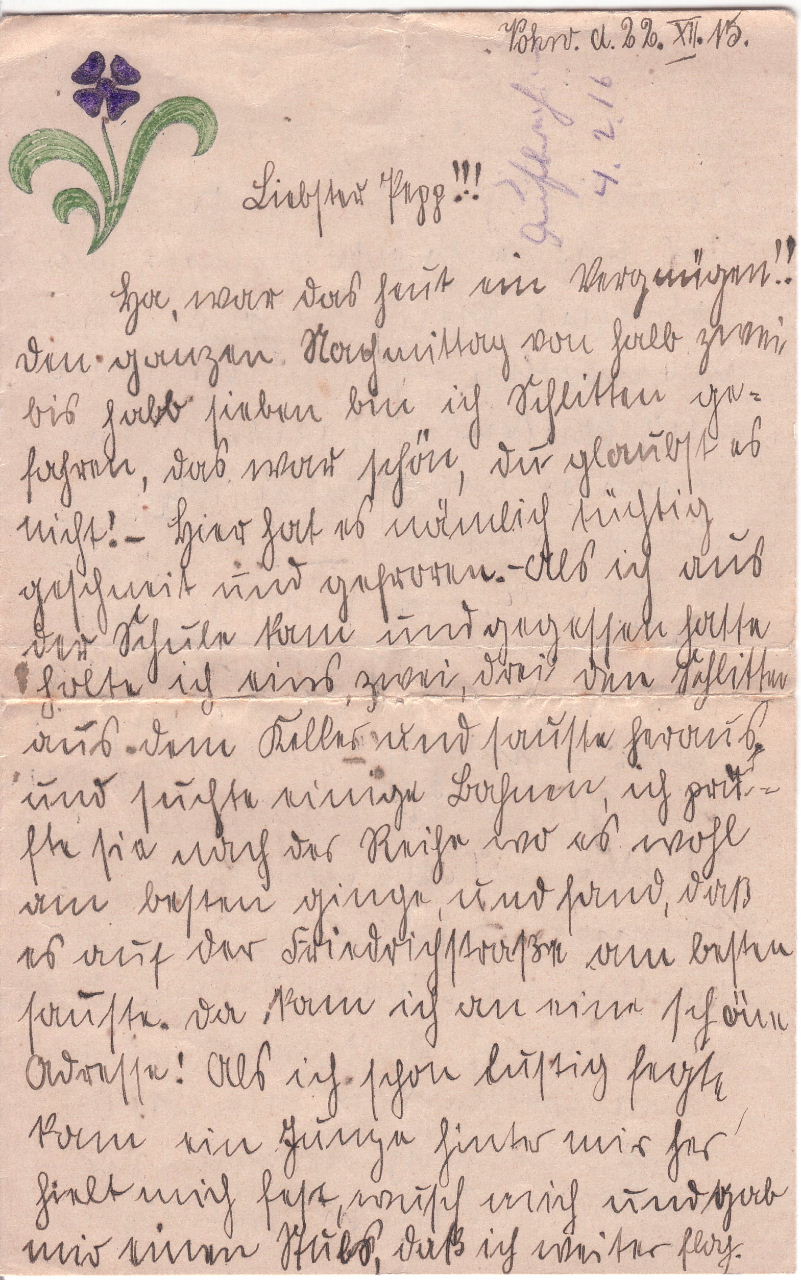 d. 22. XII. 15.
4. 2. 16
Liebster Pepp!!!
Ha, war das heut ein Vergnügen!!
den ganzen Nachmittag von halb zwei
bis halb sieben bin ich Schlitten ge-
fahren, das war schön, du glaubst es
nicht! - Hier hat es nämlich tüchtig
geschneit und gefroren. - Als ich aus
der Schule kam und gegessen hatte
holte ich eins, zwei, drei den Schlitten
aus dem Keller und sauste heraus,
und suchte einige Bahnen, ich prü-
fte sie nach der Reihe wo es wohl
am besten ginge, und fand, daß
es auf der Friedrichstraße am besten
sauste. Da kam ich an eine schöne
Adresse! Als ich schon lustig fegte,
kam ein Junge hinter mir her
hielt mich fest, wusch mich und gab
mir einen Stubs, daß ich weiter flog.